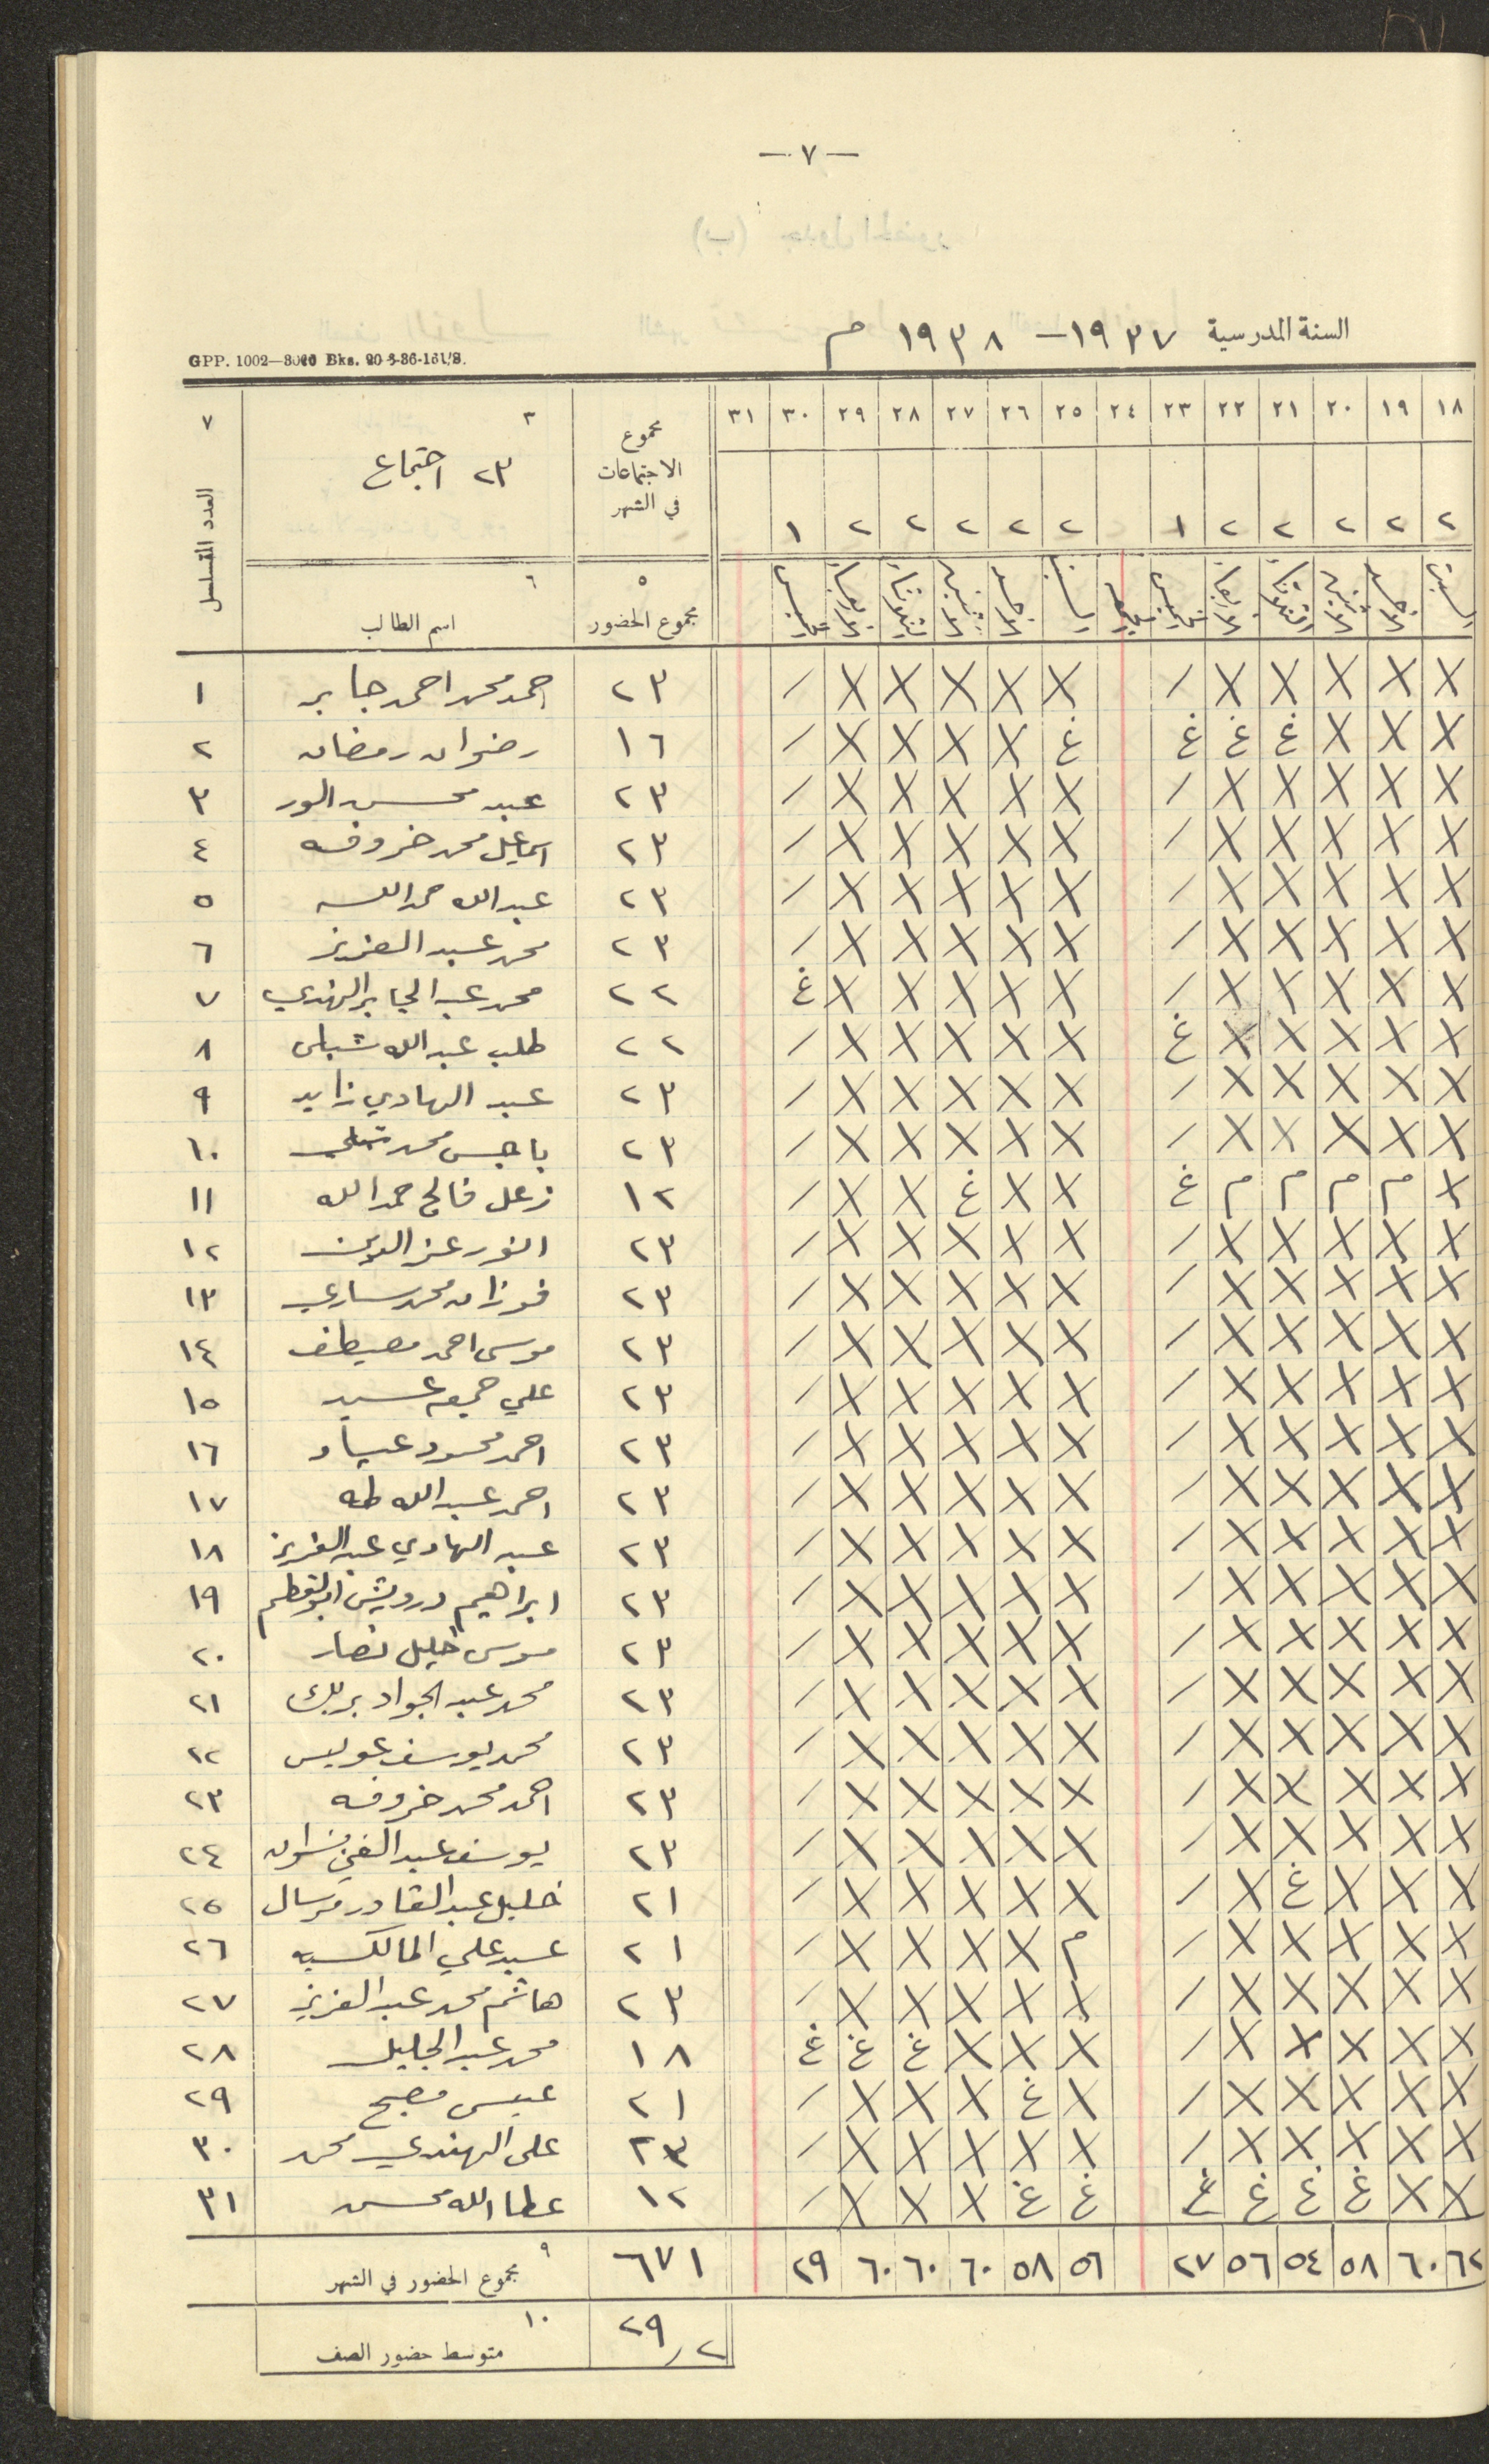 — ٧ —
السنة المدرسية ١٩٣٧ — ١٩٣٨ م
GPP. 1002—3000 Bks. 20-3-36-161/S.
١٨ ١٩ ٢٠ ٢١ ٢٢ ٢٣ ٢٤ ٢٥ ٢٦ ٢٧ ٢٨ ٢٩ ٣٠ ٣١ مجموع الاجتماعات في الشهر ٣ ٢٣ اجتماع ٧ العدد المتسلسل
٢ ٢ ٢ ٢ ٢ ١ ٢ ٢ ٢ ٢ ٢ ١
السبت الاحد الاثنين الثلاثاء الاربعاء الخميس الجمعة السبت الاحد الاثنين الثلاثاء الاربعاء الخميس ٥ مجموع الحضور ٦ اسم الطالب
X X X X X / X X X X X / ٢٣ احمد محمد احمد جابر ١
X X X غ غ غ غ X X X X / ١٦ رضوان رمضان ٢
X X X X X / X X X X X / ٢٣ عبد محسن الور ٣
X X X X X / X X X X X / ٢٣ اسماعيل محمد خروفه ٤
X X X X X / X X X X X / ٢٣ عبد الله حمد الله ٥
X X X X X / X X X X X / ٢٣ محمد عبد العزيز ٦
X X X X X / X X X X X غ ٢٢ محمد عبد الجابر الهندي ٧
X X X X X غ X X X X X / ٢٢ طلب عبد الله شبلي ٨
X X X X X / X X X X X / ٢٣ عبد الهادي زايد ٩
X X X X X / X X X X X / ٢٣ باجس محمد شملي ١٠
X م م م م غ X X غ X X / ١٢ زعل فالح حمد الله ١١
X X X X X / X X X X X / ٢٣ انور عز الدين ١٢
X X X X X / X X X X X / ٢٣ فوزان محمد ساري ١٣
X X X X X / X X X X X / ٢٣ موسى احمد مصيطف ١٤
X X X X X / X X X X X / ٢٣ علي جمعه عبيد ١٥
X X X X X / X X X X X / ٢٣ احمد محمود عياد ١٦
X X X X X / X X X X X / ٢٣ احمد عبد الله طه ١٧
X X X X X / X X X X X / ٢٣ عبد الهادي عبد العزيز ١٨
X X X X X / X X X X X / ٢٣ ابراهيم درويش ١٩
X X X X X / X X X X X / ٢٣ موسى خليل نصار ٢٠
X X X X X / X X X X X / ٢٣ محمد عبد الجواد بربك ٢١
X X X X X / X X X X X / ٢٣ محمد يوسف عويس ٢٢
X X X X X / X X X X X / ٢٣ احمد محمد خروفه ٢٣
X X X X X / X X X X X / ٢٣ يوسف عبد الغني نشوان ٢٤
X X X غ X / X X X X X / ٢١ خليل عبد القادر مرسال ٢٥
X X X X X / م X X X X / ٢١ عبيد علي المالكيه ٢٦
X X X X X / X X X X X / ٢٣ هاشم محمد عبد العزيز ٢٧
X X X X X / X X X غ غ غ ١٨ محمد عبد الجليل ٢٨
X X X X X / X غ X X X / ٢١ عيسى مصبح ٢٩
X X X X X / X X X X X / ٢٣ علي الهندي محمد ٣٠
X X غ غ غ غ غ غ X X X / ١٢ عطا الله محسن ٣١
٦٢ ٦٠ ٥٨ ٥٤ ٥٦ ٢٧ ٥٦ ٥٨ ٦٠ ٦٠ ٦٠ ٢٩ ٦٧١ ٩ مجموع الحضور في الشهر
٢٩/٢ ١٠ متوسط حضور الصف